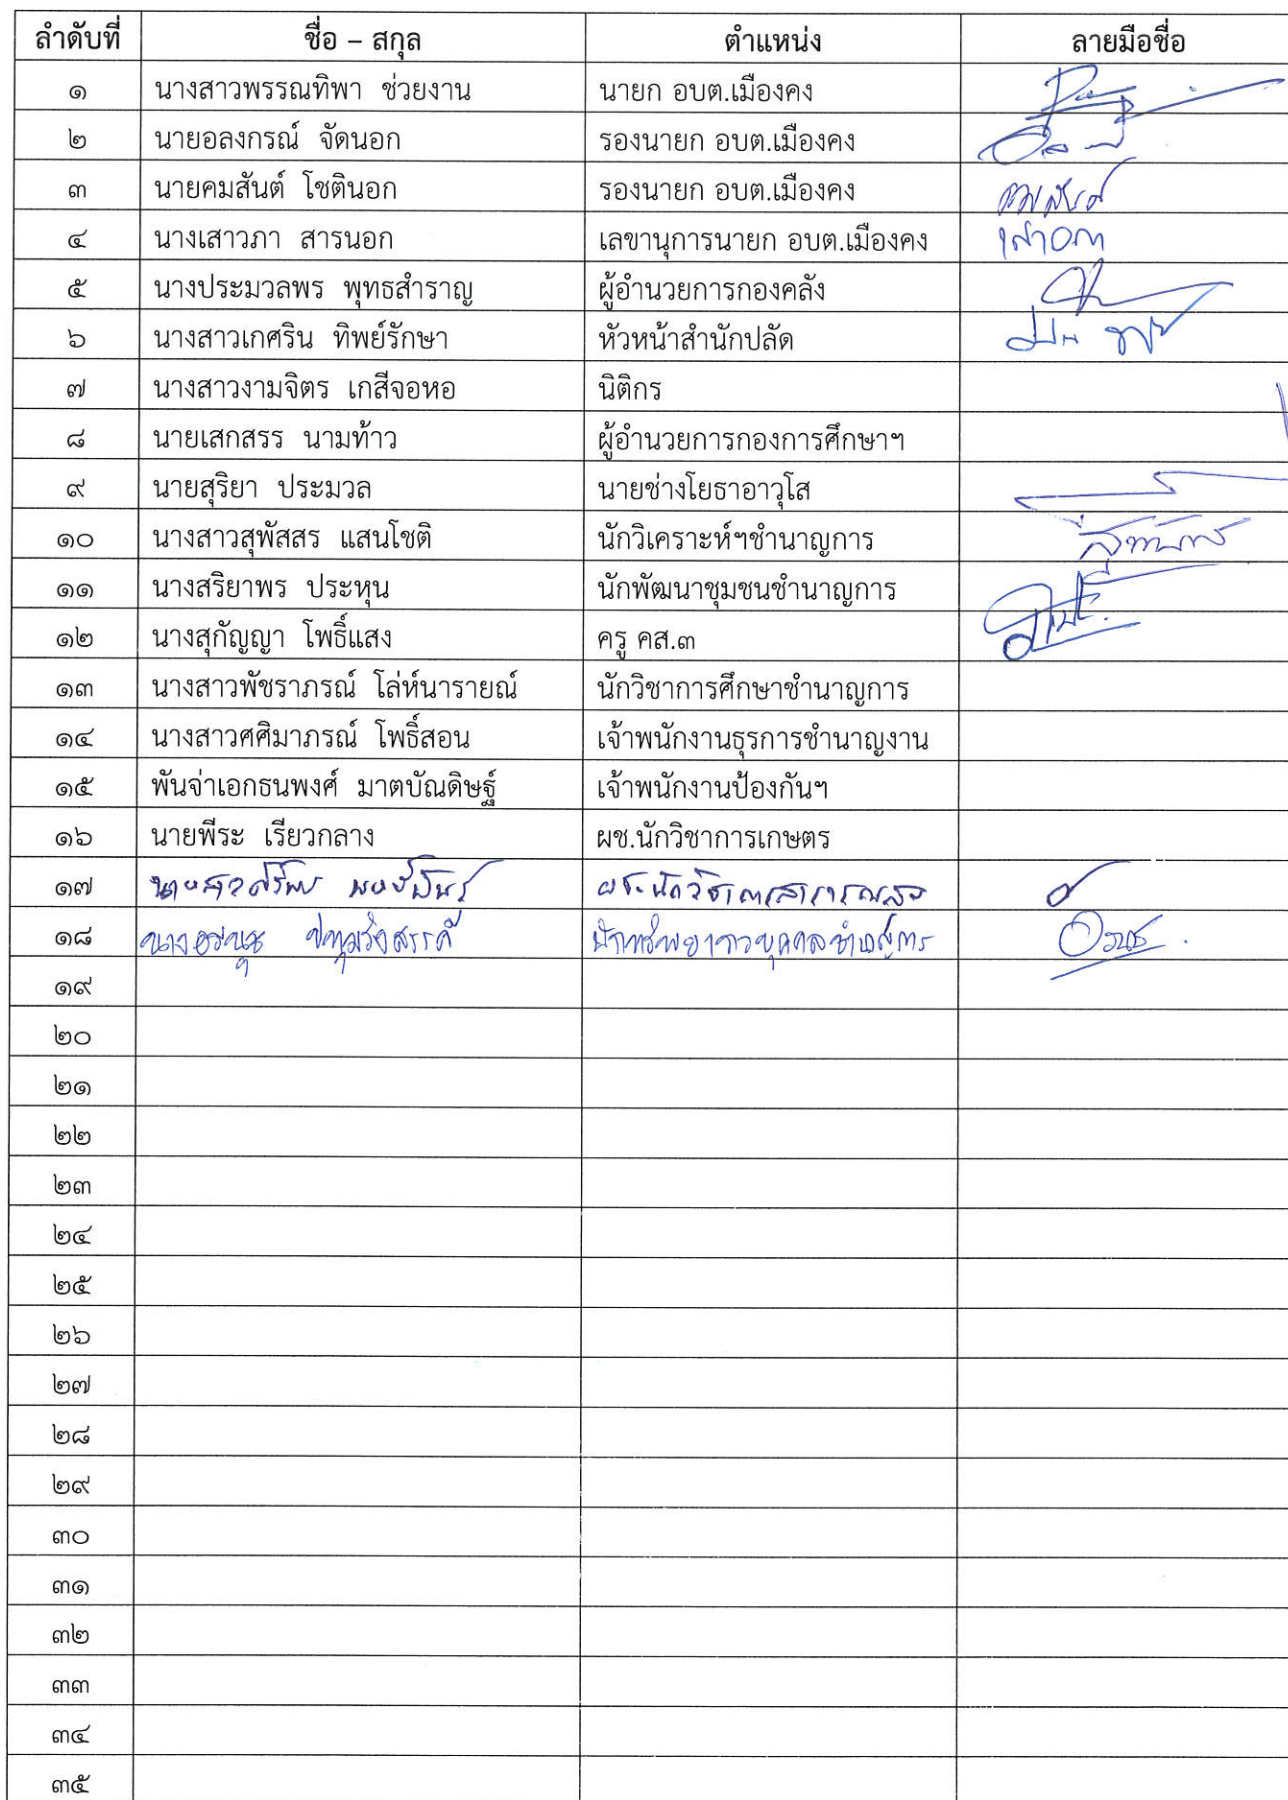 ลำดับที่ ชื่อ – สกุล ตำแหน่ง ลายมือชื่อ
๑ นางสาวพรรณทิพา ช่วยงาน นายก อบต.เมืองคง
๒ นายอลงกรณ์ จัดนอก รองนายก อบต.เมืองคง
๓ นายคมสันต์ โชตินอก รองนายก อบต.เมืองคง คมสันต์
๔ นางเสาวภา สารนอก เลขานุการนายก อบต.เมืองคง เสาวภา
๕ นางประมวลพร พุทธสำราญ ผู้อำนวยการกองคลัง
๖ นางสาวเกศริน ทิพย์รักษา หัวหน้าสำนักปลัด
๗ นางสาวงามจิตร เกสีจอหอ นิติกร
๘ นายเสกสรร นามท้าว ผู้อำนวยการกองการศึกษาฯ
๙ นายสุริยา ประมวล นายช่างโยธาอาวุโส
๑๐ นางสาวสุพัสสร แสนโชติ นักวิเคราะห์ฯชำนาญการ
๑๑ นางสริยาพร ประหุน นักพัฒนาชุมชนชำนาญการ
๑๒ นางสุกัญญา โพธิ์แสง ครู คส.๓
๑๓ นางสาวพัชราภรณ์ โล่ห์นารายณ์ นักวิชาการศึกษาชำนาญการ
๑๔ นางสาวศศิมาภรณ์ โพธิ์สอน เจ้าพนักงานธุรการชำนาญงาน
๑๕ พันจ่าเอกธนพงศ์ มาตบัณดิษฐ์ เจ้าพนักงานป้องกันฯ
๑๖ นายพีระ เรียวกลาง ผช.นักวิชาการเกษตร
๑๗ ผช.นักวิชาการสาธารณสุข
๑๘ นางอรนุช ปทุมรังสรรค์ นักทรัพยากรบุคคลชำนาญการ
๑๙
๒๐
๒๑
๒๒
๒๓
๒๔
๒๕
๒๖
๒๗
๒๘
๒๙
๓๐
๓๑
๓๒
๓๓
๓๔
๓๕